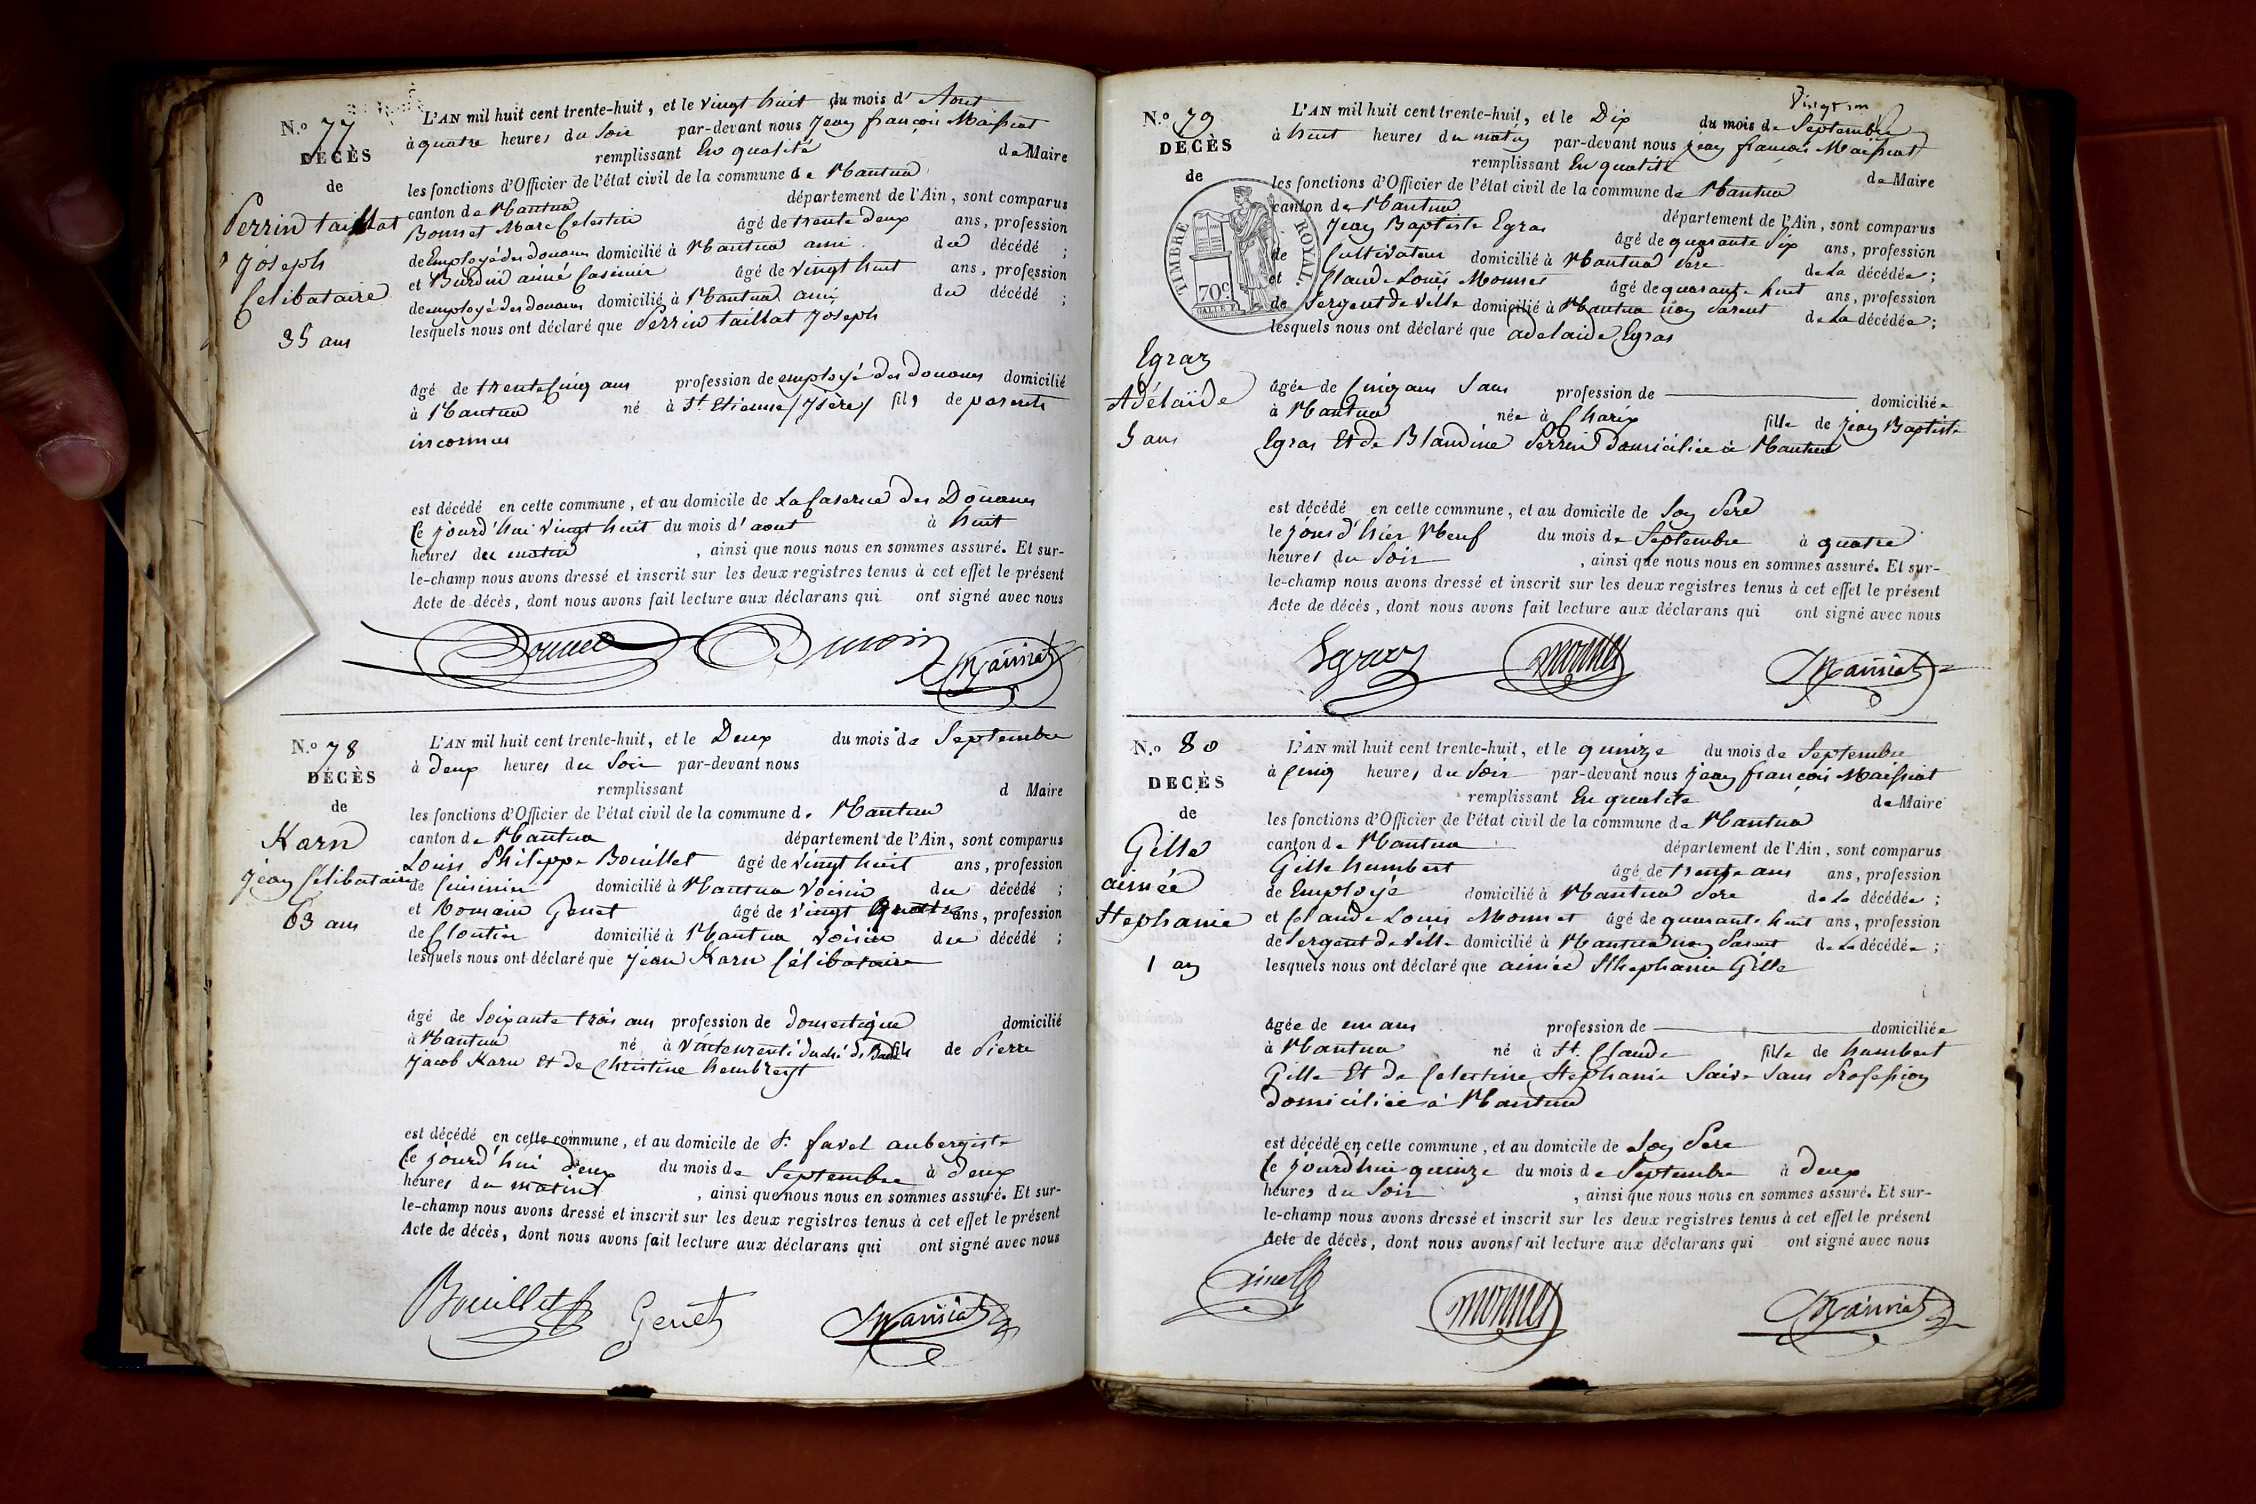 N.o 77
DÉCÈS
de
Perrin taillat
Joseph
Celibataire
35 ans
L'AN mil huit cent trente-huit, et le vingt huit du mois d' Aout
à quatre heures du Soir par-devant nous Jean françois Maissiat
remplissant En qualité de Maire
les fonctions d'Officier de l'état civil de la commune de Nantua
canton de Nantua département de l'Ain, sont comparus
Bonnet Marc Celestin âgé de trente deux ans, profession
de Employé des douanes domicilié à Nantua ami du décédé ;
et Burdin aimé Casimir âgé de vingt huit ans, profession
de employé des douanes domicilié à Nantua ami du décédé ;
lesquels nous ont déclaré que Perrin taillat Joseph
âgé de trente Cinq ans profession de employé des douanes domicilié
à Nantua né à St. Etienne (Isère) fils de parents
inconnus
est décédé en cette commune, et au domicile de La Caserne des Douanes
Ce jourd'hui vingt huit du mois d' aout à huit
heures du matin , ainsi que nous nous en sommes assuré. Et sur-
le-champ nous avons dressé et inscrit sur les deux registres tenus à cet effet le présent
Acte de décès, dont nous avons fait lecture aux déclarans qui ont signé avec nous
Bonnet Maissiat
N.o 78
DÉCÈS
de
Karn
Jean Celibataire
63 ans
L'AN mil huit cent trente-huit, et le Deux du mois de Septembre
à deux heures du Soir par-devant nous
remplissant d Maire
les fonctions d'Officier de l'état civil de la commune d. Nantua
canton de Nantua département de l'Ain, sont comparus
Louis Philippe Bouillet âgé de vingt huit ans, profession
de Cuisinier domicilié à Nantua Voisin du décédé ;
et Romain Genet âgé de vingt quatre ans, profession
de Cloutier domicilié à Nantua voisin du décédé ;
lesquels nous ont déclaré que Jean Karn Célibataire
âgé de Soixante trois ans profession de domestique domicilié
à Nantua né à duché de Bade fils de Pierre
Jacob Karn et de Christine
est décédé en cette commune, et au domicile de Sr. favel aubergiste
Ce jourd'hui deux du mois de Septembre à deux
heures du matin , ainsi que nous nous en sommes assuré. Et sur-
le-champ nous avons dressé et inscrit sur les deux registres tenus à cet effet le présent
Acte de décès, dont nous avons fait lecture aux déclarans qui ont signé avec nous
Bouillet Genet Maissiat
Vingt un
N.o 79
DÉCÈS
de
TIMBRE ROYAL.
70c.
Egraz
Adélaïde
5 ans
L'AN mil huit cent trente-huit, et le Dix du mois de Septembre
à huit heures du matin par-devant nous Jean françois Maissiat
remplissant En qualité de Maire
les fonctions d'Officier de l'état civil de la commune de Nantua
canton de Nantua département de l'Ain, sont comparus
Jean Baptiste Egras âgé de quarante six ans, profession
de Cultivateur domicilié à Nantua Père de La décédée ;
et Claude Louis Monnet âgé de quarante huit ans, profession
de Sergent de Ville domicilié à Nantua non Parent de La décédée ;
lesquels nous ont déclaré que adelaide Egras
âgée de Cinq ans Sans profession de domiciliée
à Nantua née à Charix fille de Jean Baptiste
Egras Et de Blandine Perrin domiciliée à Nantua
est décédé en cette commune, et au domicile de Son Père
le jour d'hier Neuf du mois de Septembre à quatre
heures du Soir , ainsi que nous nous en sommes assuré. Et sur-
le-champ nous avons dressé et inscrit sur les deux registres tenus à cet effet le présent
Acte de décès, dont nous avons fait lecture aux déclarans qui ont signé avec nous
Egraz Monnet Maissiat
N.o 80
DÉCÈS
de
Gille
aimée
Stephanie
1 an
L'AN mil huit cent trente-huit, et le quinze du mois de Septembre
à Cinq heures du Soir par-devant nous Jean françois Maissiat
remplissant En qualité de Maire
les fonctions d'Officier de l'état civil de la commune de Nantua
canton de Nantua département de l'Ain, sont comparus
Gille humbert âgé de trente ans ans, profession
de Employé domicilié à Nantua Père de La décédée ;
et Claude Louis Monnet âgé de quarante huit ans, profession
de Sergent de Ville domicilié à Nantua non Parent de La décédée ;
lesquels nous ont déclaré que aimée Sthephanie Gille
âgée de un ans profession de domiciliée
à Nantua né à St. Claude fille de humbert
Gille Et de Celestine Stephanie Saive Sans Profession
domiciliée à Nantua
est décédé en cette commune, et au domicile de Son Père
Ce jourd'hui quinze du mois de Septembre à deux
heures du Soir , ainsi que nous nous en sommes assuré. Et sur-
le-champ nous avons dressé et inscrit sur les deux registres tenus à cet effet le présent
Acte de décès, dont nous avons fait lecture aux déclarans qui ont signé avec nous
Monnet Maissiat